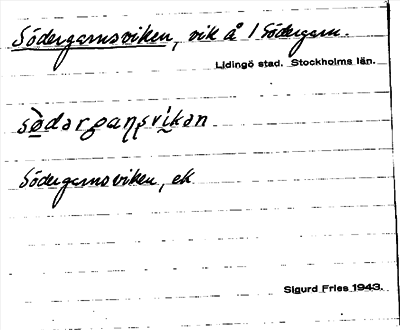 Södergarnsviken, vik å 1 Södergarn.
Lidingö stad. Stockholms län.
södərgaɳʂvikən
Södergarnsviken, ek
Sigurd Fries 1943.